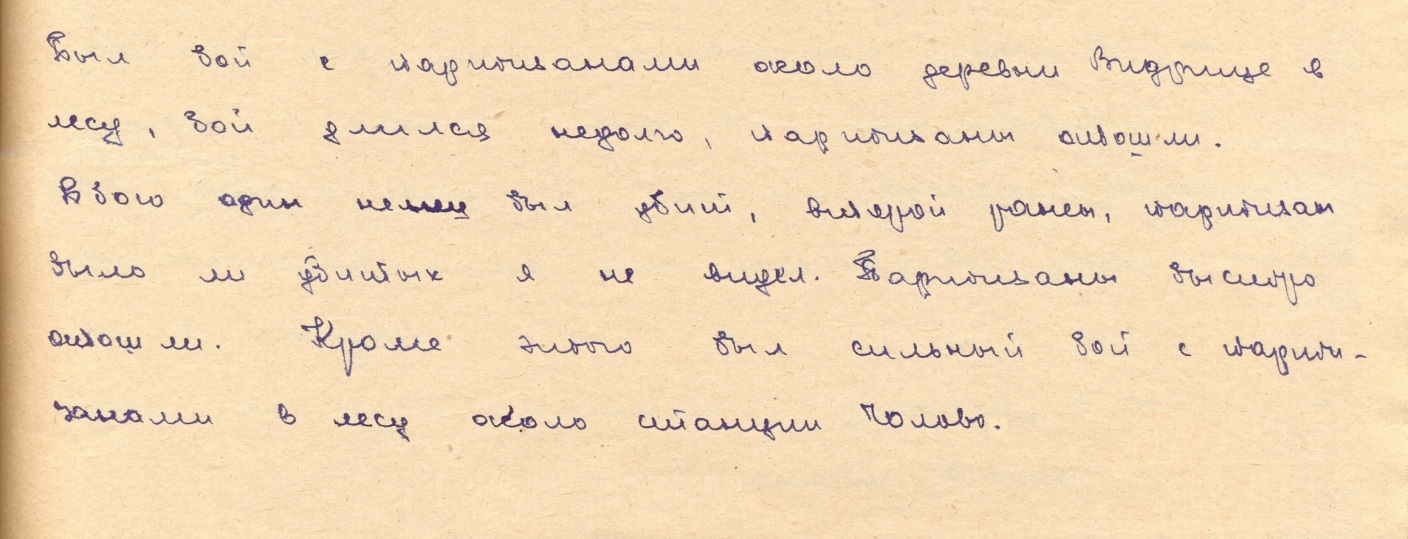 Был бой с партизанами около деревни Видрице в
лесу, бой длился недолго, партизаны отошли.
В бою один немец был убит, второй ранен, партизан
было ли убитых я не видел. Партизаны быстро
отошли. Кроме этого был сильный бой с парти-
занами в лесу около станции Чолово.